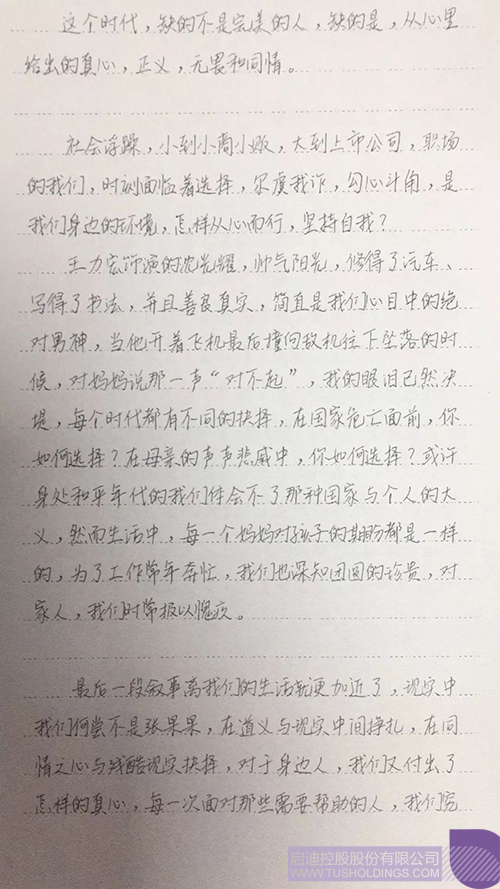 这个时代，缺的不是完美的人，缺的是，从心里
给出的真心，正义，无畏和同情。
社会浮躁，小到小商小贩，大到上市公司，职场
的我们，时刻面临着选择，尔虞我诈，勾心斗角，是
我们身边的环境，怎样从心而行，坚持自我？
王力宏饰演的沈光耀，帅气阳光，修得了汽车、
写得了书法，并且善良真实，简直是我们心目中的绝
对男神，当他开着飞机最后撞向敌机往下坠落的时
候，对妈妈说那一声“对不起”，我的眼泪已然决
堤，每个时代都有不同的抉择，在国家危亡面前，你
如何选择？在母亲的声声悲戚中，你如何选择？或许
身处和平年代的我们体会不了那种国家与个人的大
义，然而生活中，每一个妈妈对孩子的期盼都是一样
的，为了工作常年奔忙，我们也深知团圆的珍贵，对
家人，我们时常报以愧疚。
最后一段叙事离我们的生活就更加近了，现实中
我们何尝不是张果果，在道义与现实中间挣扎，在同
情之心与残酷现实抉择，对于身边人，我们又付出了
怎样的真心，每一次面对那些需要帮助的人，我们宽
启迪控股股份有限公司
WWW.TUSHOLDINGS.COM